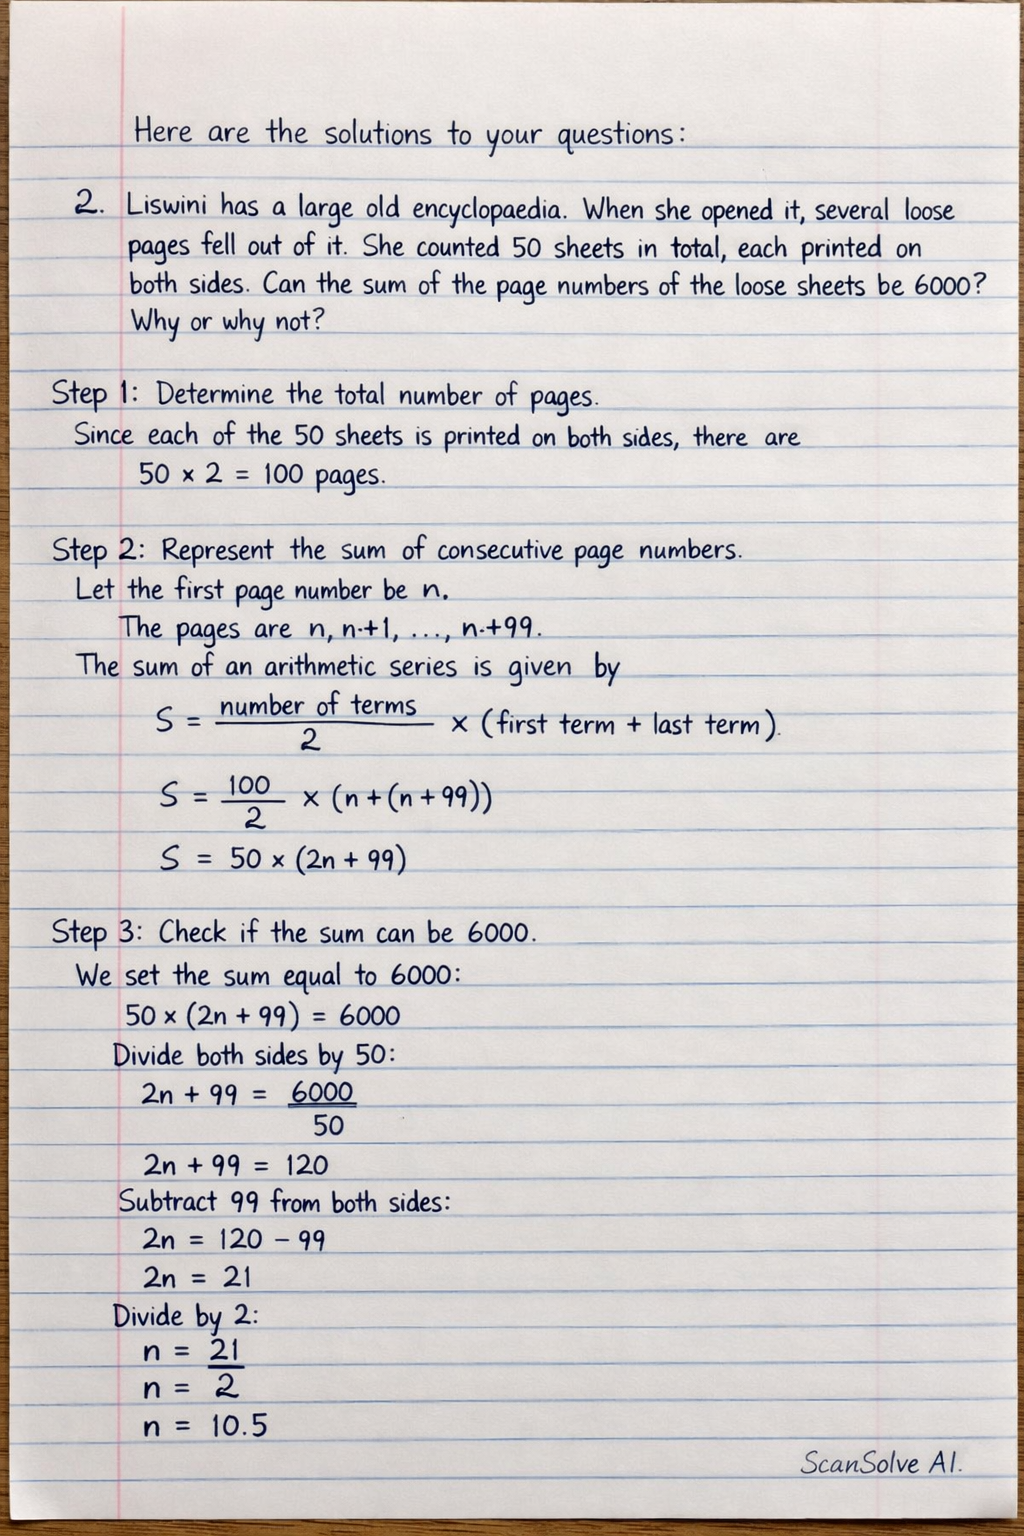 Here are the solutions to your questions:
2. Liswini has a large old encyclopaedia. When she opened it, several loose
pages fell out of it. She counted 50 sheets in total, each printed on
both sides. Can the sum of the page numbers of the loose sheets be 6000?
Why or why not?
Step 1: Determine the total number of pages.
Since each of the 50 sheets is printed on both sides, there are
50 × 2 = 100 pages.
Step 2: Represent the sum of consecutive page numbers.
Let the first page number be n.
The pages are n, n+1, ..., n+99.
The sum of an arithmetic series is given by
S = number of terms / 2 × (first term + last term).
S = 100 / 2 × (n + (n + 99))
S = 50 × (2n + 99)
Step 3: Check if the sum can be 6000.
We set the sum equal to 6000:
50 × (2n + 99) = 6000
Divide both sides by 50:
2n + 99 = 6000
50
2n + 99 = 120
Subtract 99 from both sides:
2n = 120 – 99
2n = 21
Divide by 2:
n = 21
n = 2
n = 10.5
ScanSolve AI.